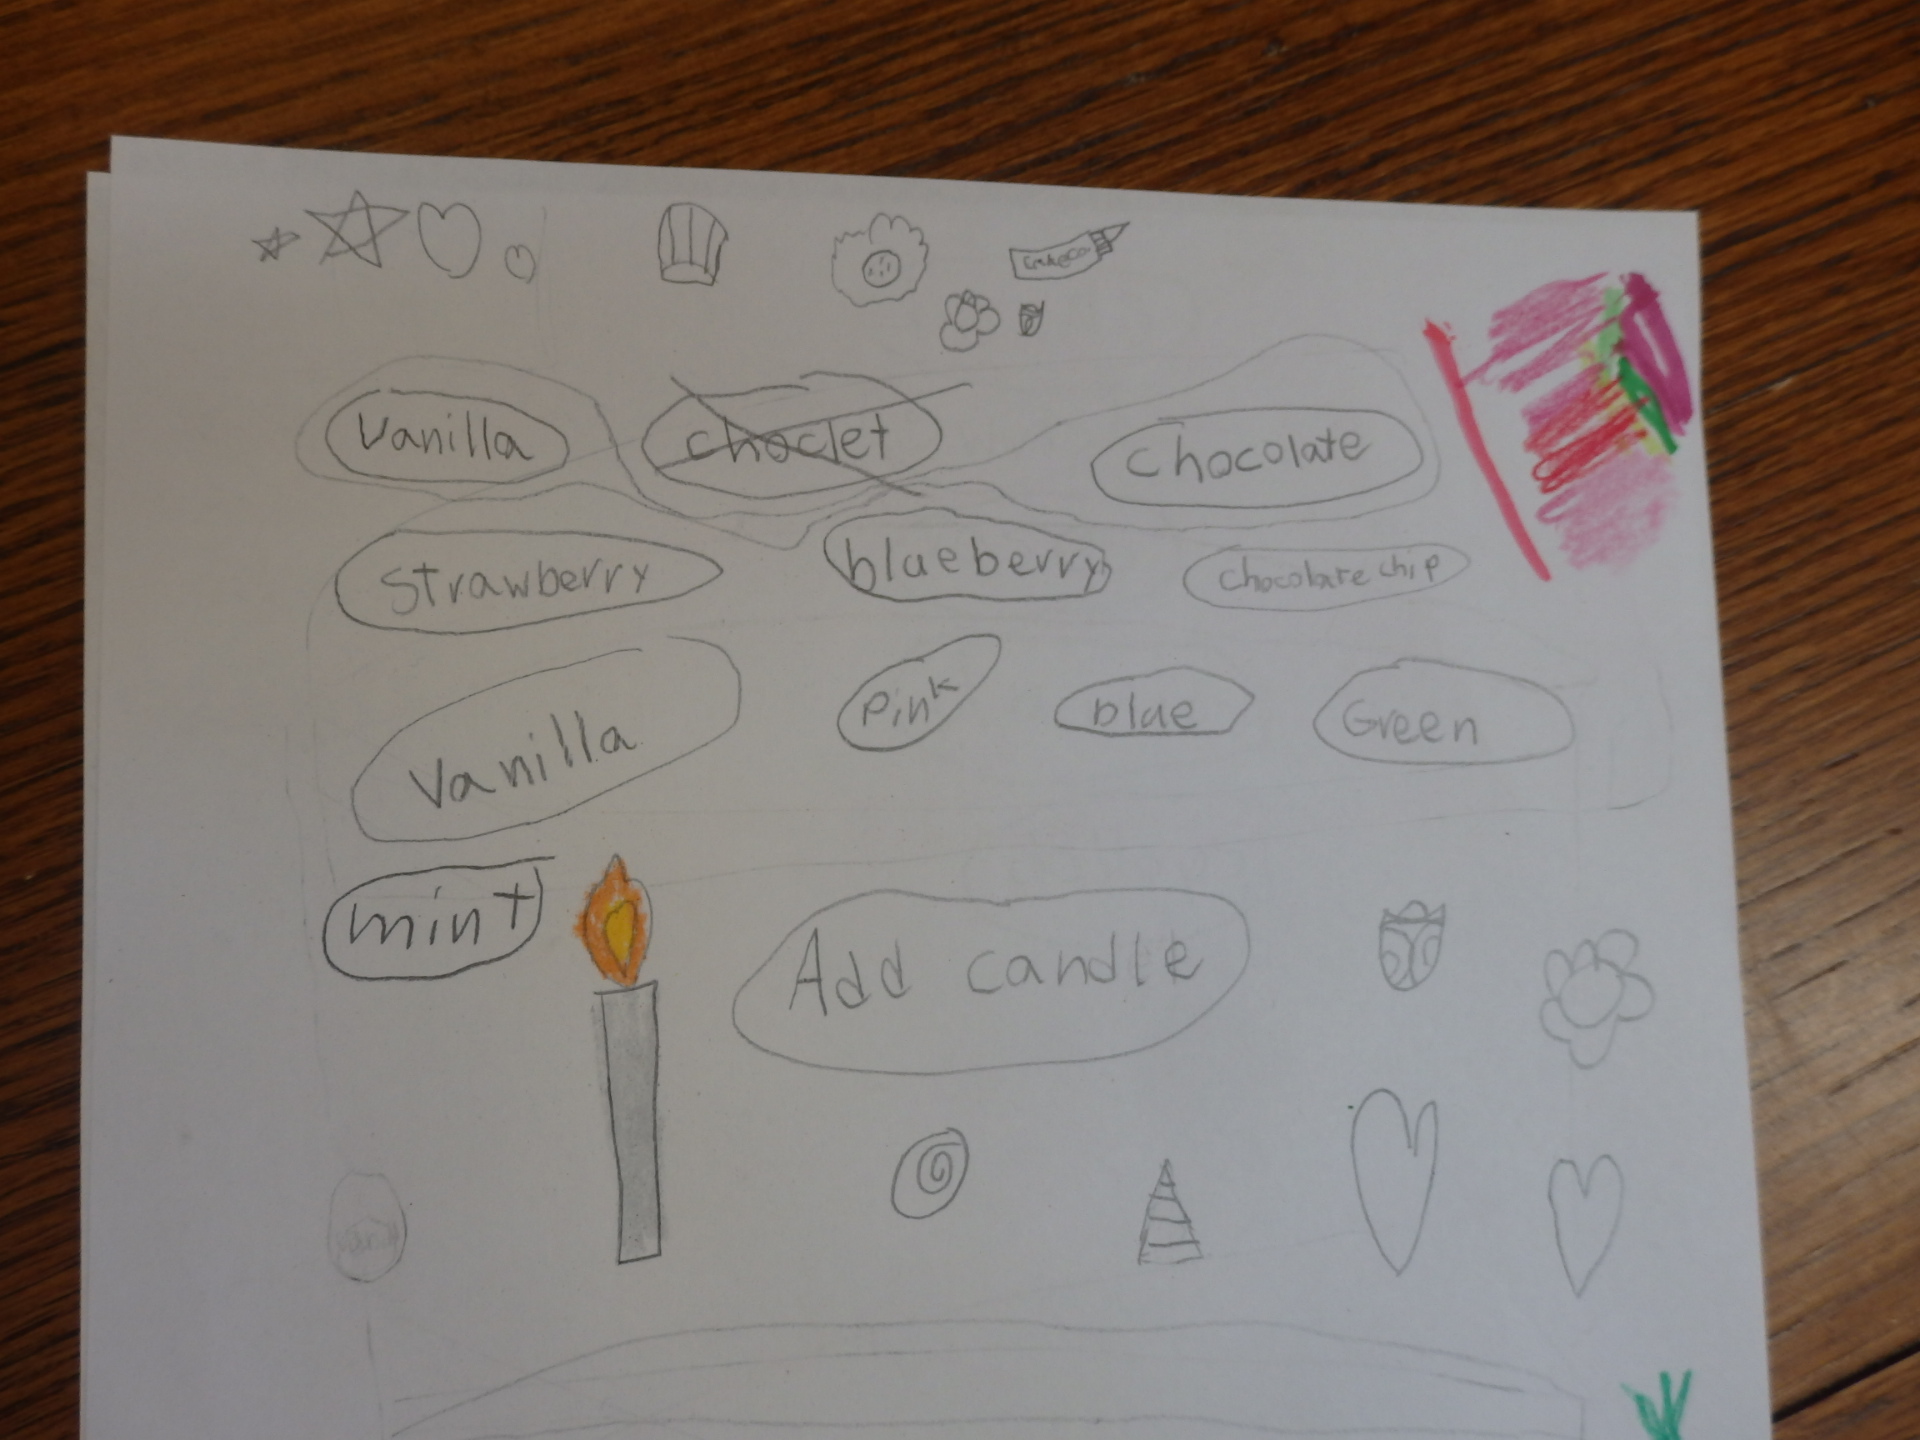 Vanilla choclet chocolate
Strawberry blueberry chocolate chip
Vanilla Pink blue Green
mint Add candle